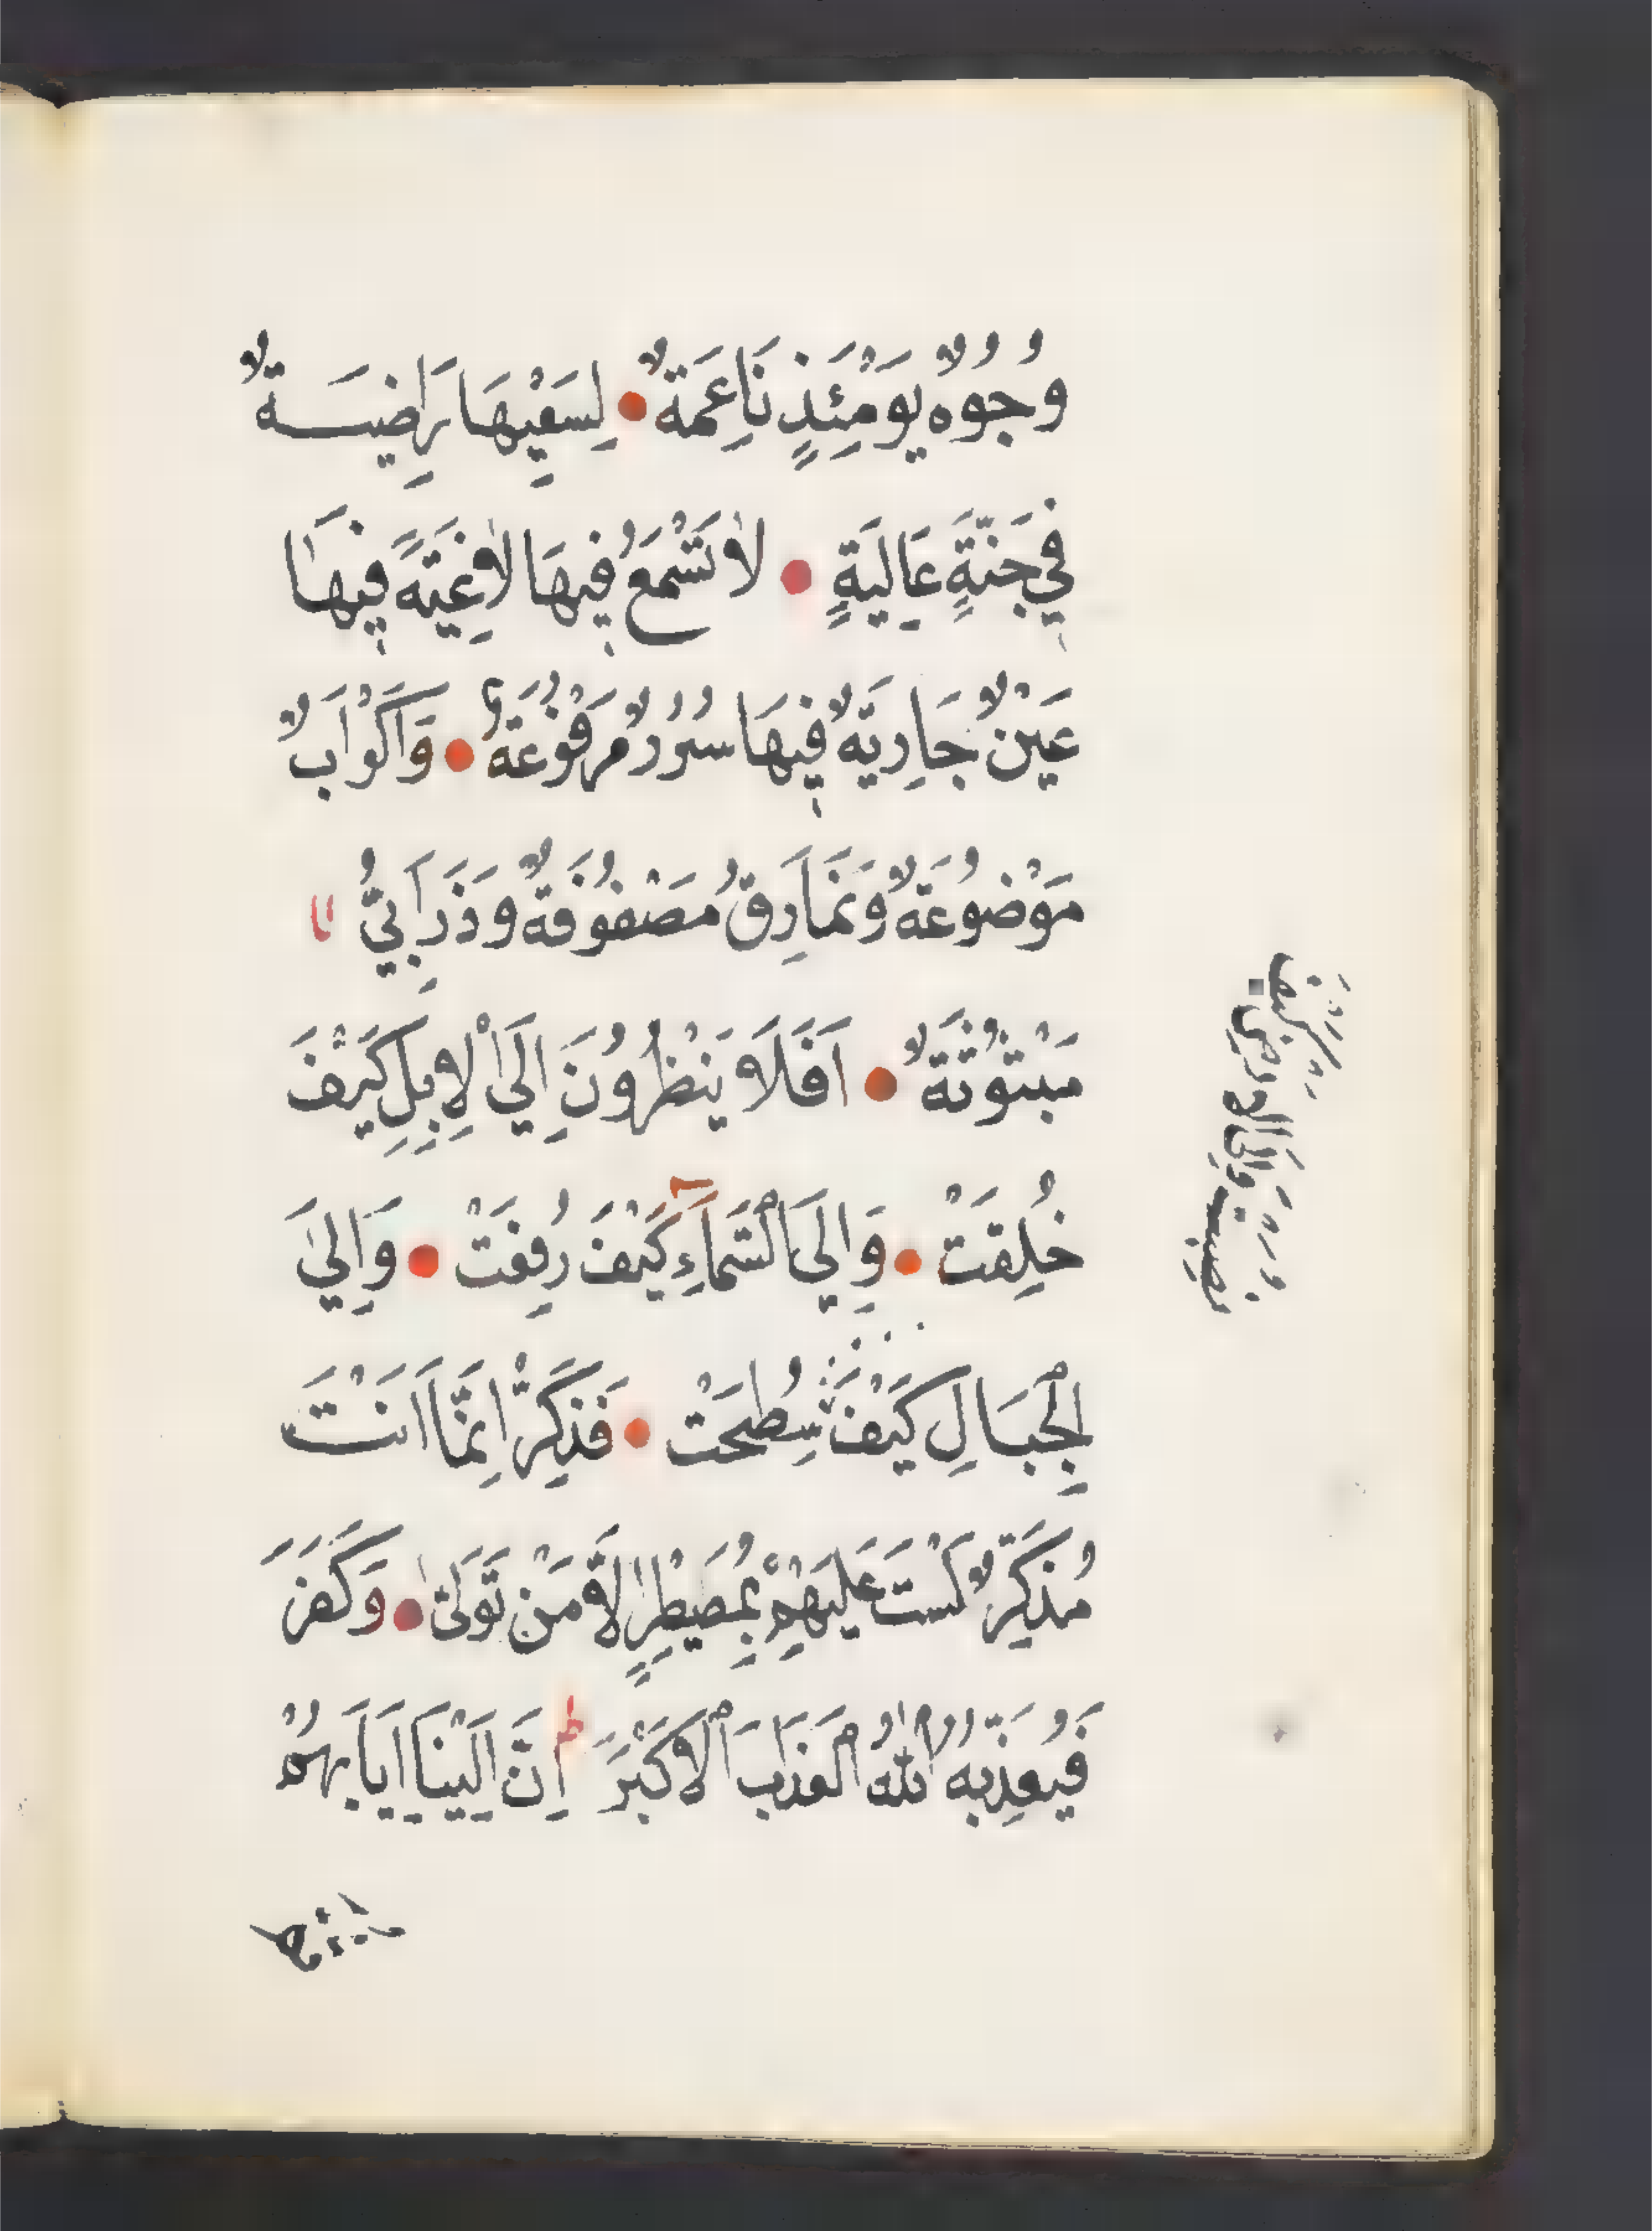 وُجُوهٌ يَوْمَئِذٍ نَاعِمَةٌ لِسَعْيِهَا رَاضِيَةٌ
فِي جَنَّةٍ عَالِيَةٍ لَا تَسْمَعُ فِيهَا لَاغِيَةً فِيهَا
عَيْنٌ جَارِيَةٌ فِيهَا سُرُرٌ مَرْفُوعَةٌ وَاَكْوَابٌ
مَوْضُوعَةٌ وَنَمَارِقُ مَصْفُوفَةٌ وَذَرَابِيُّ
مَبْثُوثَةٌ اَفَلَا يَنْظُرُونَ اِلَي الْاِبِلِ كَيْفَ
خُلِقَتْ وَاِلَي السَّمَاءِ كَيْفَ رُفِعَتْ وَاِلَيَ
الْجِبَالِ كَيْفَ سُطِحَتْ فَذَكِّرْ اِنَّمَا اَنْتَ
مُذَكِّرٌ لَسْتَ عَلَيْهِمْ بِمُصَيْطِرٍ اِلَّا مَنْ تَوَلَّىٰ وَكَفَرَ
فَيُعَذِّبُهُ اللّٰهُ الْعَذَابَ الْاَكْبَرَ اِنَّ اِلَيْنَا اِيَابَهُمْ
نصبت والى الارض كيف